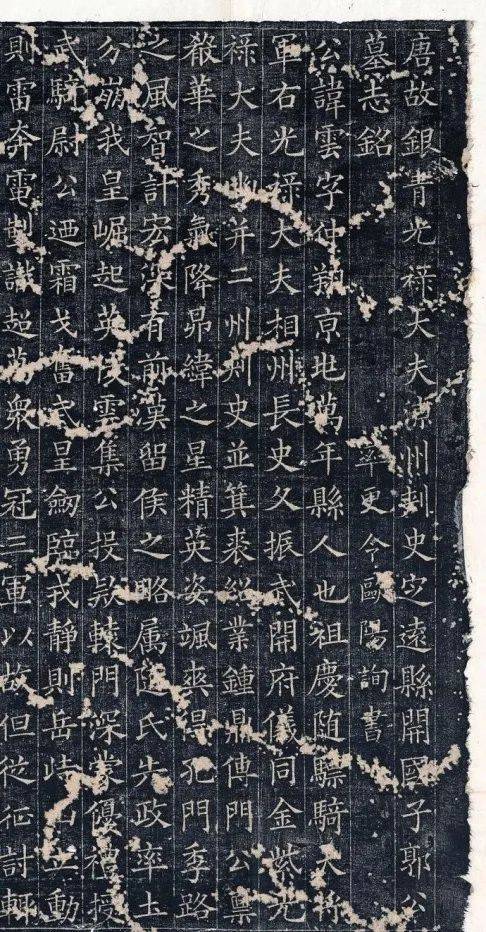 唐故銀青光祿大夫涼州刺史定遠縣開國子郭公
墓志銘 率更令歐陽詢書
公諱雲字仲翔京兆萬年縣人也祖慶随驃騎大將
軍右光祿大夫相州長史父振武開府儀同金紫光
祿大夫幽并二州刺史並箕裘紹業鍾鼎傳門公稟
華之秀氣降昴緯之星精英姿颯爽得孔門季路
之風智計宏深有前漢留侯之略属氏失政率土
分崩我皇崛起英俊雲集公投款轅門深蒙優禮授
武騎尉公迺霜戈奮武星劒臨戎静則岳峙山立動
則雷奔電掣識超萬衆勇冠三軍以故但從征討轉